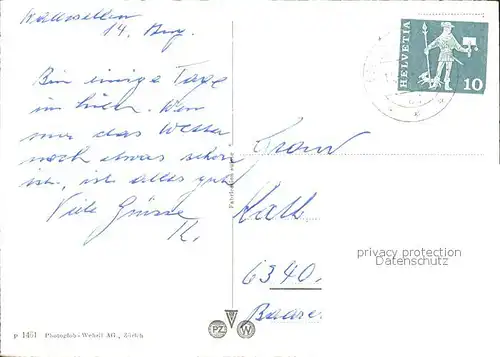 14. Aug.
Bin einige Tage
im
nur das Wetter
noch etwas schön
ist, ist alles gut
Viele Grüsse
R.
HELVETIA
10
Frau
6340.
Baar
privacy protection
Datenschutz
p 1461 Photoglob-Wehrli AG., Zürich
PZ W